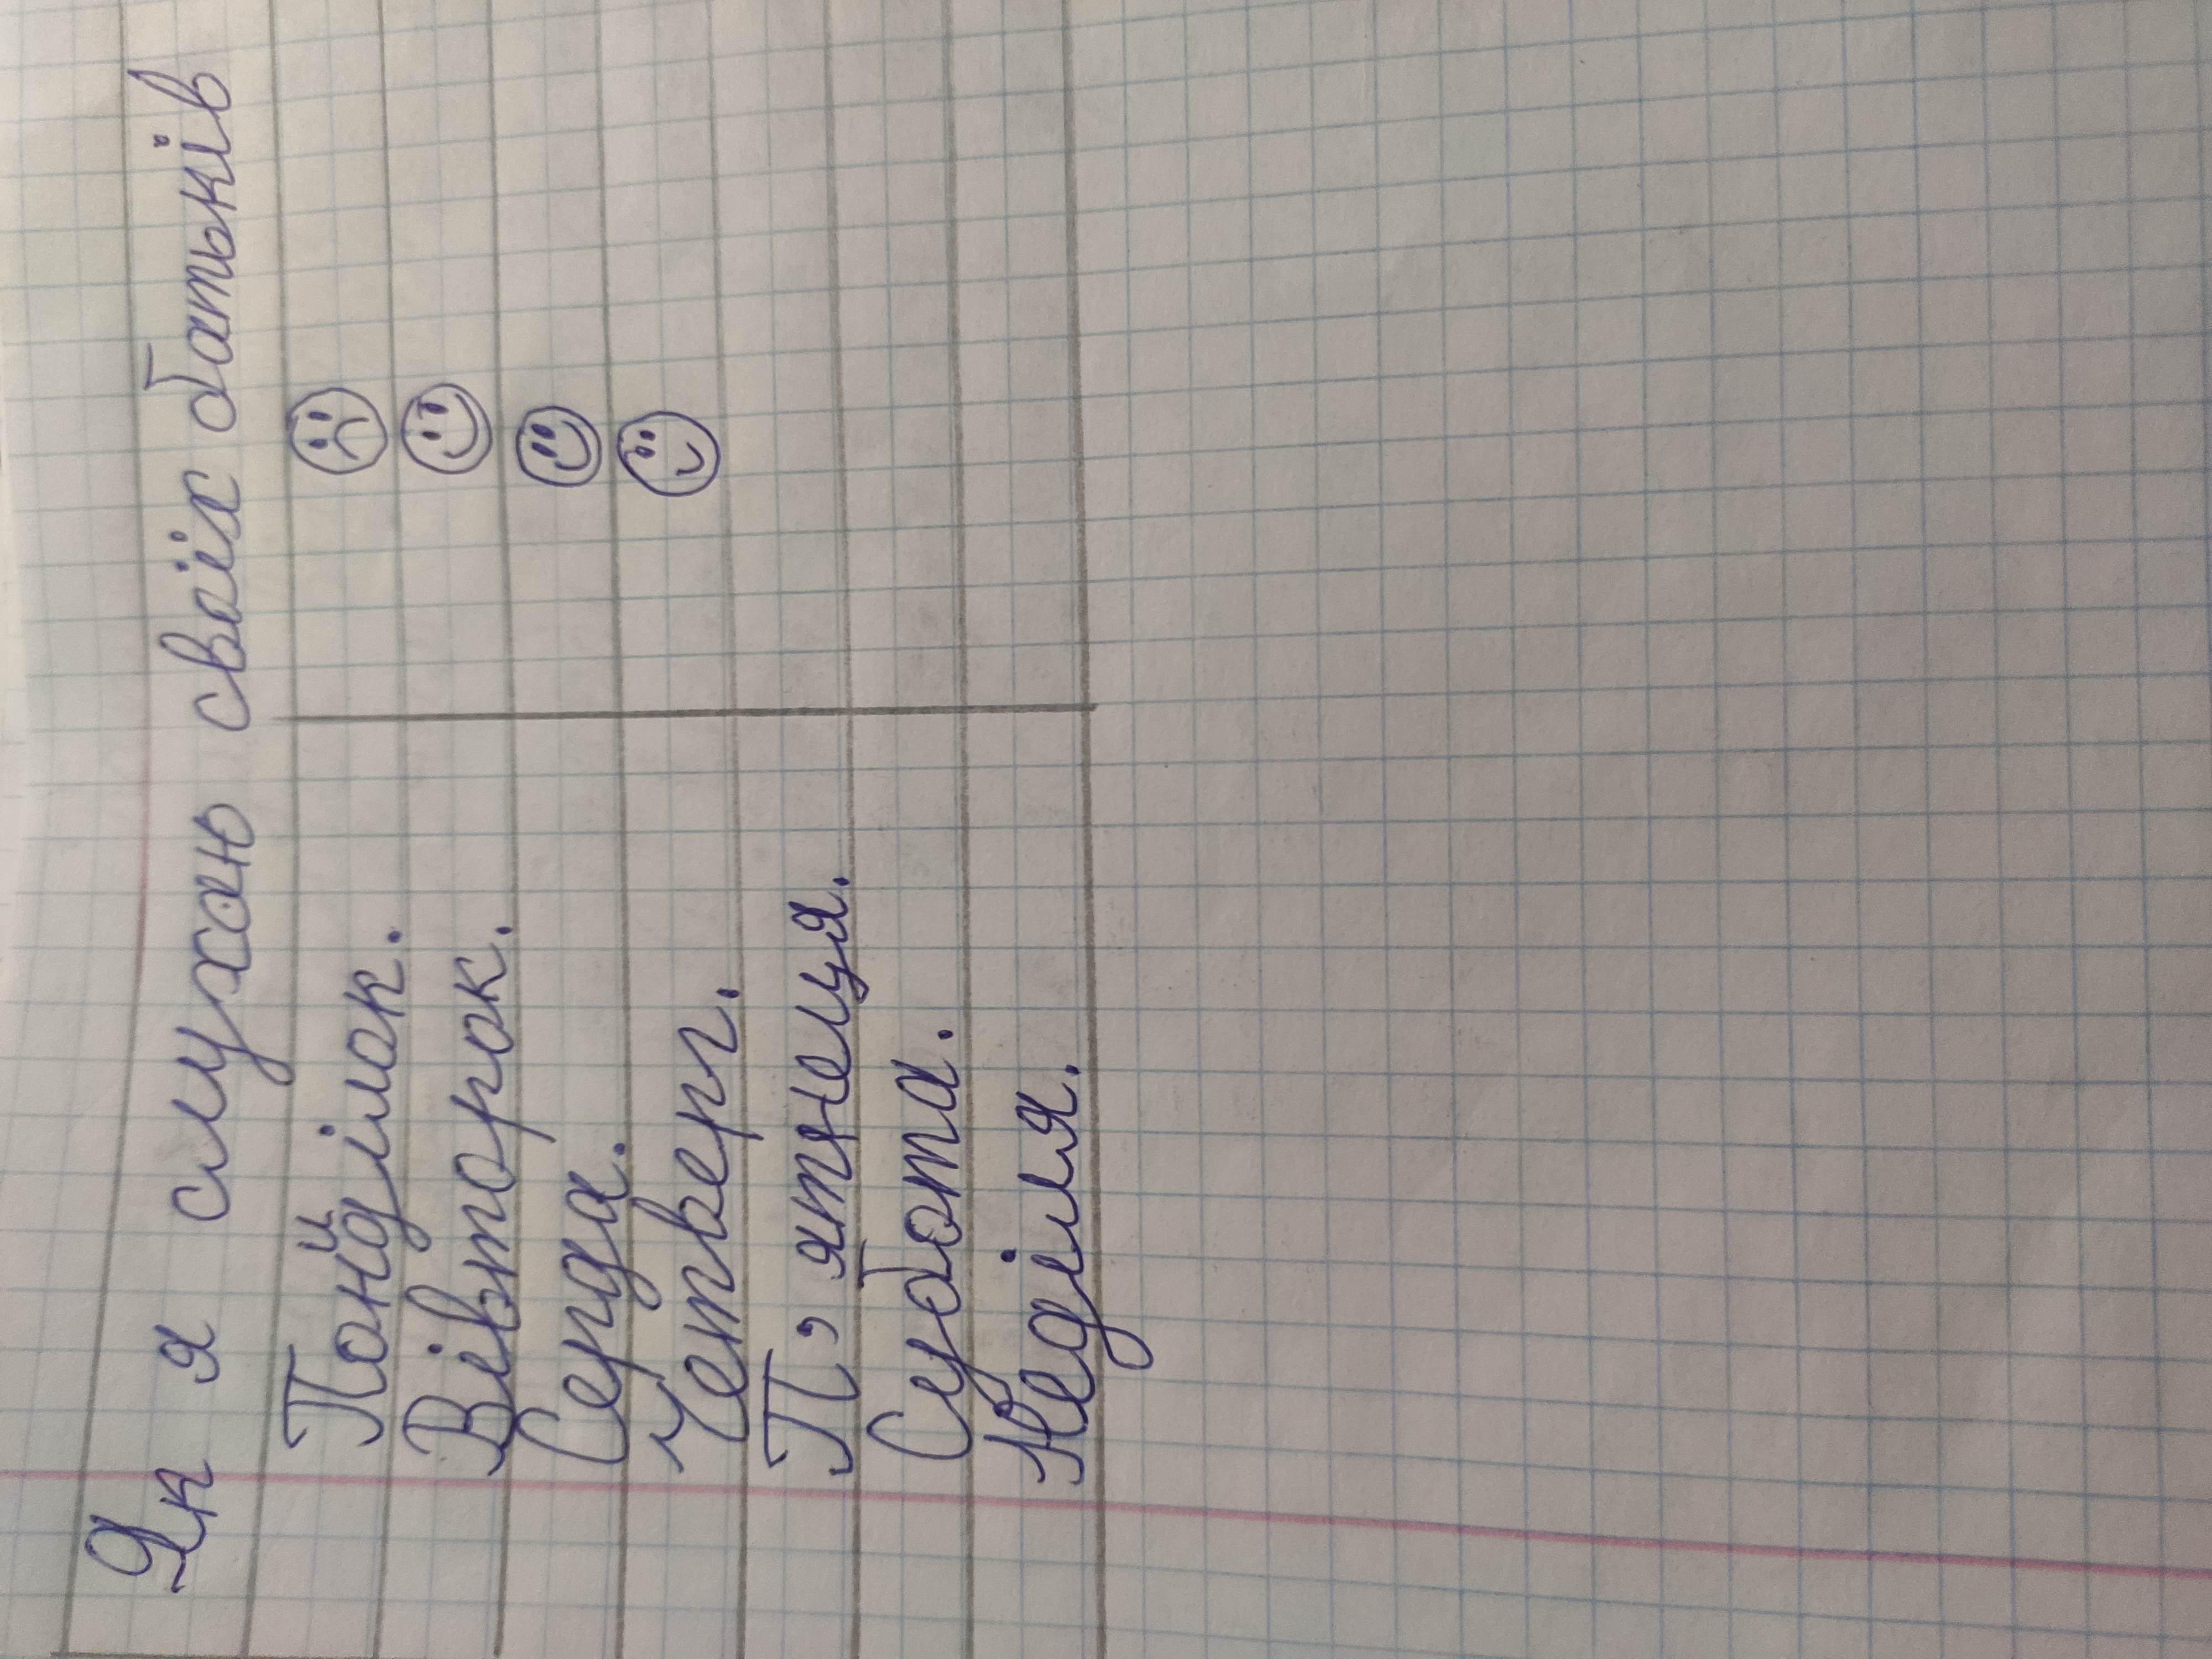 Як я слухаю своїх батьків
Пониділок.
Вівторок.
Серда.
Четверг.
П,ятнеця.
Субота.
Неділя.